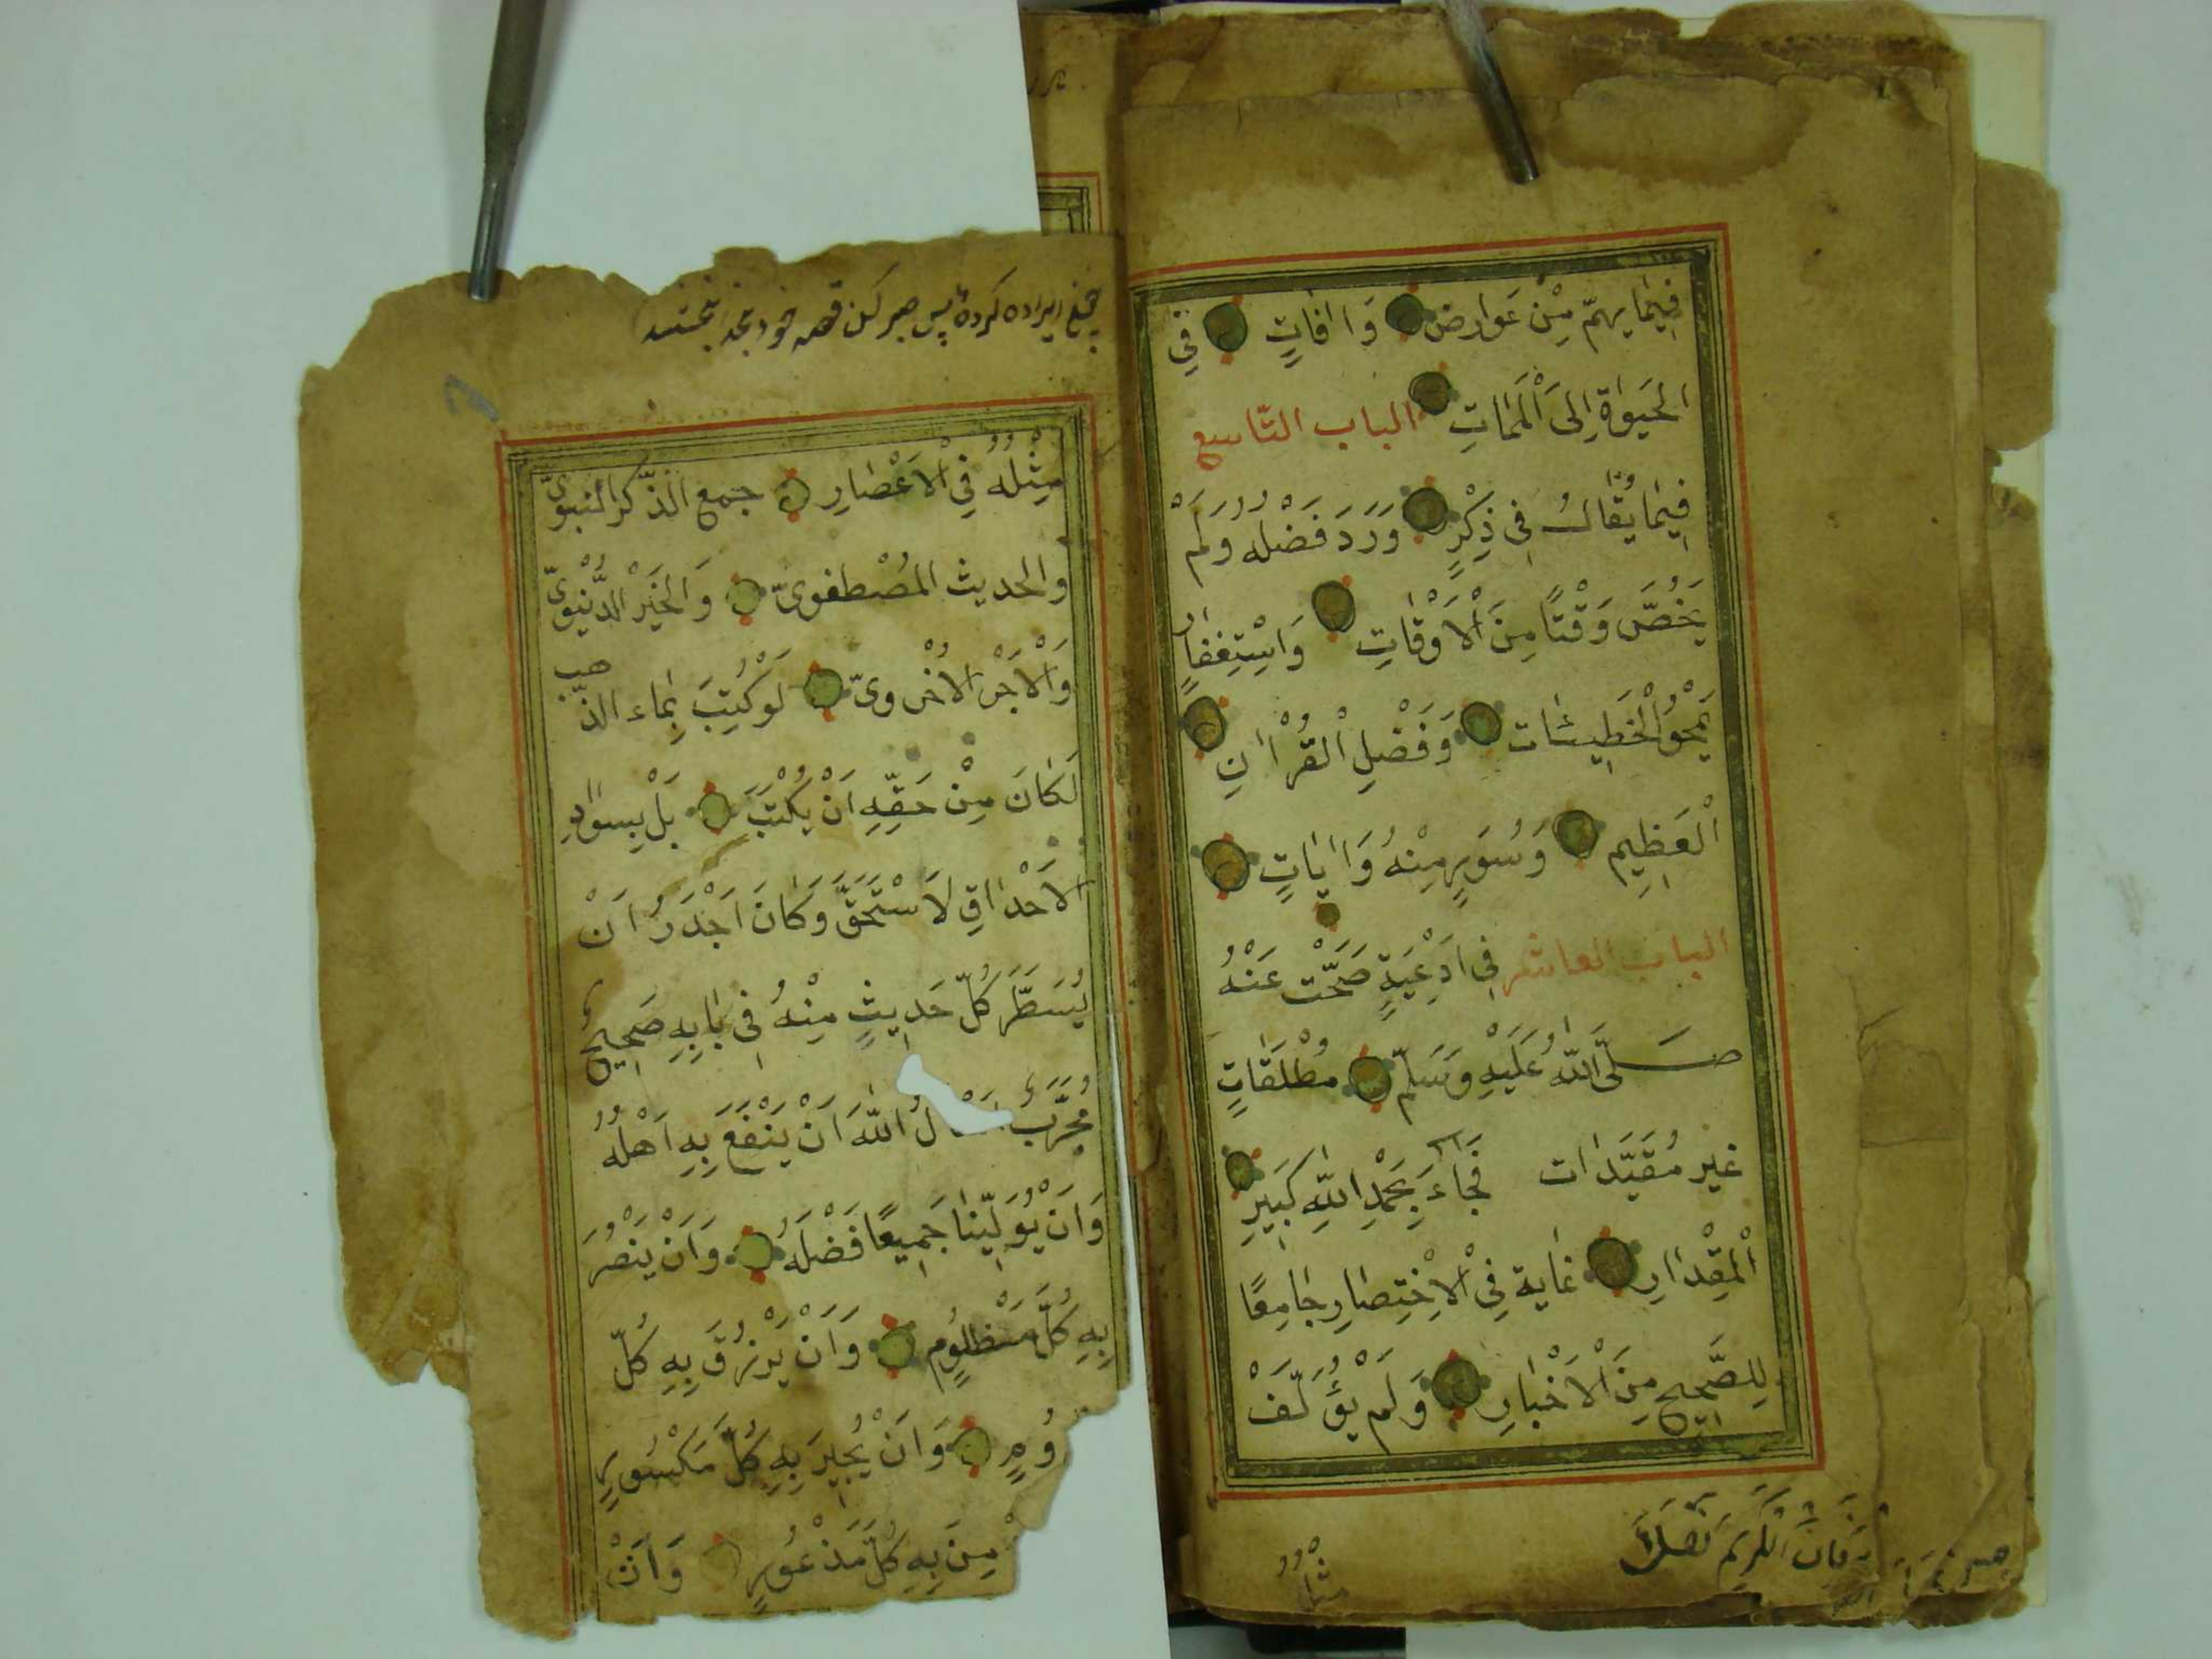 فِيمَا يهمّ مِنْ عَوارض وَاٰفاتٍ فِي
الحَيوٰةِ اِلىَ الْمَمَاتِ الباب التّاسِع
فِيمَا يُقَالُ فِى ذِكْرٍ وَرَدَ فَضْلُهُ وَلَمْ
يَخُصَّ وَقْتًا مِنَ الْاَوْقَاتِ وَاسْتِغْفَارٍ
يَمْحُو الْخَطِيئَات وَفَضْلِ الْقُرْاٰنِ
الْعَظِيمِ وَسُوَرٍ مِنْهُ وَاٰيَاتٍ
الباب العاشر فِى اَدْعِيَةٍ صَحَّتْ عَنْهُ
صَلَّى اللّٰهُ عَلَيْهِ وَسَلَّمَ مُطْلَقَاتٍ
غير مُقَيَّدَات فَجَاءَ بِحَمْدِ اللّٰهِ كَبِيرِ
الْمِقْدَارِ غاية فِي الْاِخْتِصَارِ جَامِعًا
لِلصَّحِيحِ مِنَ الْاَخْبَارِ وَلَمْ يُؤَلَّفْ
مثله
مِثْلُهُ فِي الْاَعْصَارِ جمع الذّكر النبوىّ
والحديث المُصْطفوىّ وَالْخَيْرَ الدُّنْيوىّ
وَالْاَجْرَ الْاُخْروىّ لَوْ كُتِبَ بِمَاء الذّهب
لَكَانَ مِنْ حَقِّهِ اَنْ يُكْتَبَ بَلْ بِسَوادِ
الْاَحْدَاقِ لَاسْتَحَقَّ وَكَانَ اَجْدَرُ اَنْ
يُسَطَّرَ كُلّ حَدِيثٍ مِنْهُ فِى بَابِهِ صَحِيحٌ
مُجَرَّبٌ اَسْاَلُ اللّٰهَ اَنْ يَنْفَعَ بِهِ اَهْلَهُ
وَاَنْ يُوَلِّيَنَا جَمِيعًا فَضْلَهُ وَاَنْ يَنْصُرَ
بِهِ كُلَّ مَظْلُومٍ وَاَنْ يَرْزُقَ بِهِ كُلَّ
وَاَنْ يُجْبِرَ بِهِ كُلَّ مَكْسُورٍ
مِنَ بِهِ كُلَّ مَذْعُورٍ وَاَنْ